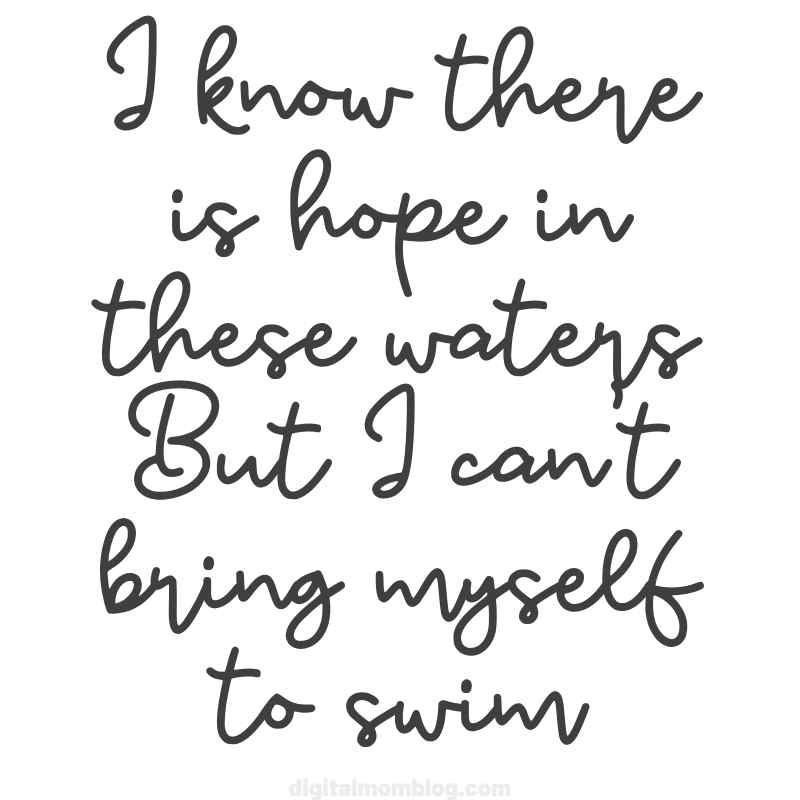 I know there
is hope in
these waters
But I can't
bring myself
to swim
digitalmomblog.com